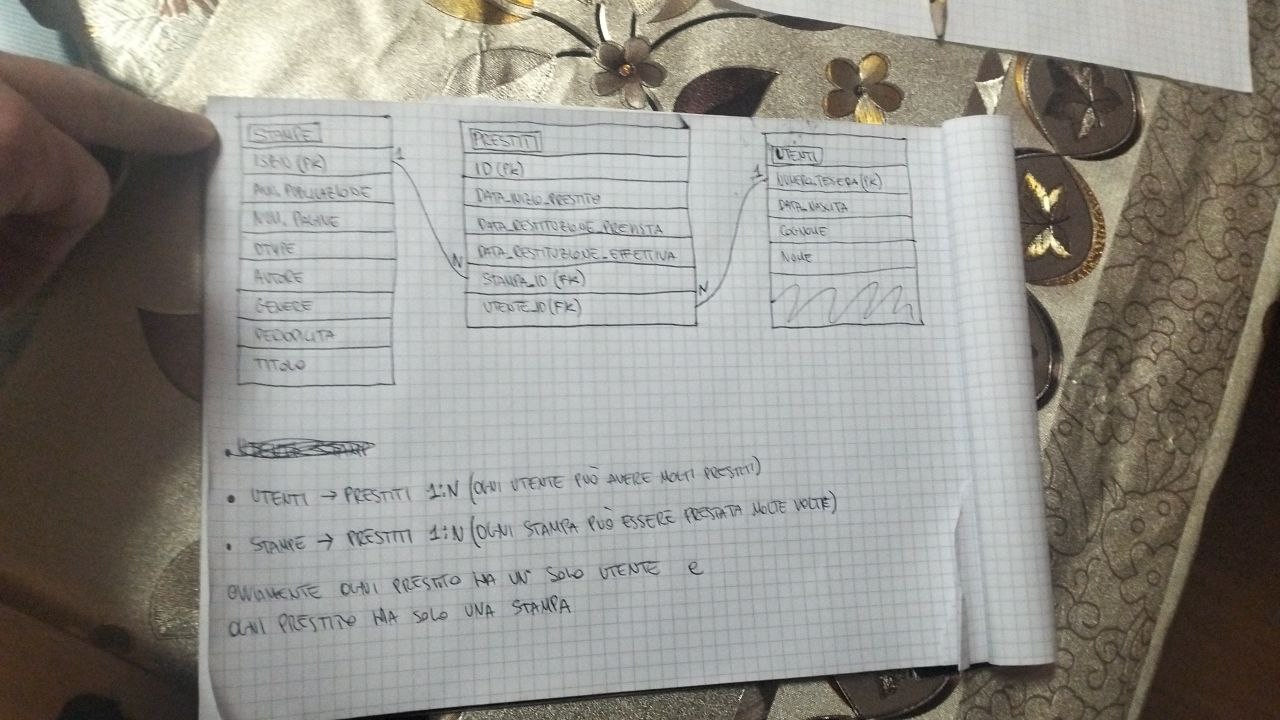 STAMPE
ISBN (PK)
ANN. PUBBLICAZIONE
NUM. PAGINE
DTYPE
AUTORE
GENERE
PERIODICITA
TITOLO
1
N
PRESTITI
ID (PK)
DATA_INIZIO_PRESTITO
DATA_RESTITUZIONE_PREVISTA
DATA_RESTITUZIONE_EFFETTIVA
STAMPA_ID (FK)
UTENTE_ID (FK)
1
N
UTENTI
NUMERO_TESSERA (PK)
DATA_NASCITA
COGNOME
NOME
• UTENTI → PRESTITI 1:N (OGNI UTENTE PUÒ AVERE MOLTI PRESTITI)
• STAMPE → PRESTITI 1:N (OGNI STAMPA PUÒ ESSERE PRESTATA MOLTE VOLTE)
OVVIAMENTE OGNI PRESTITO HA UN SOLO UTENTE e
OGNI PRESTITO HA SOLO UNA STAMPA